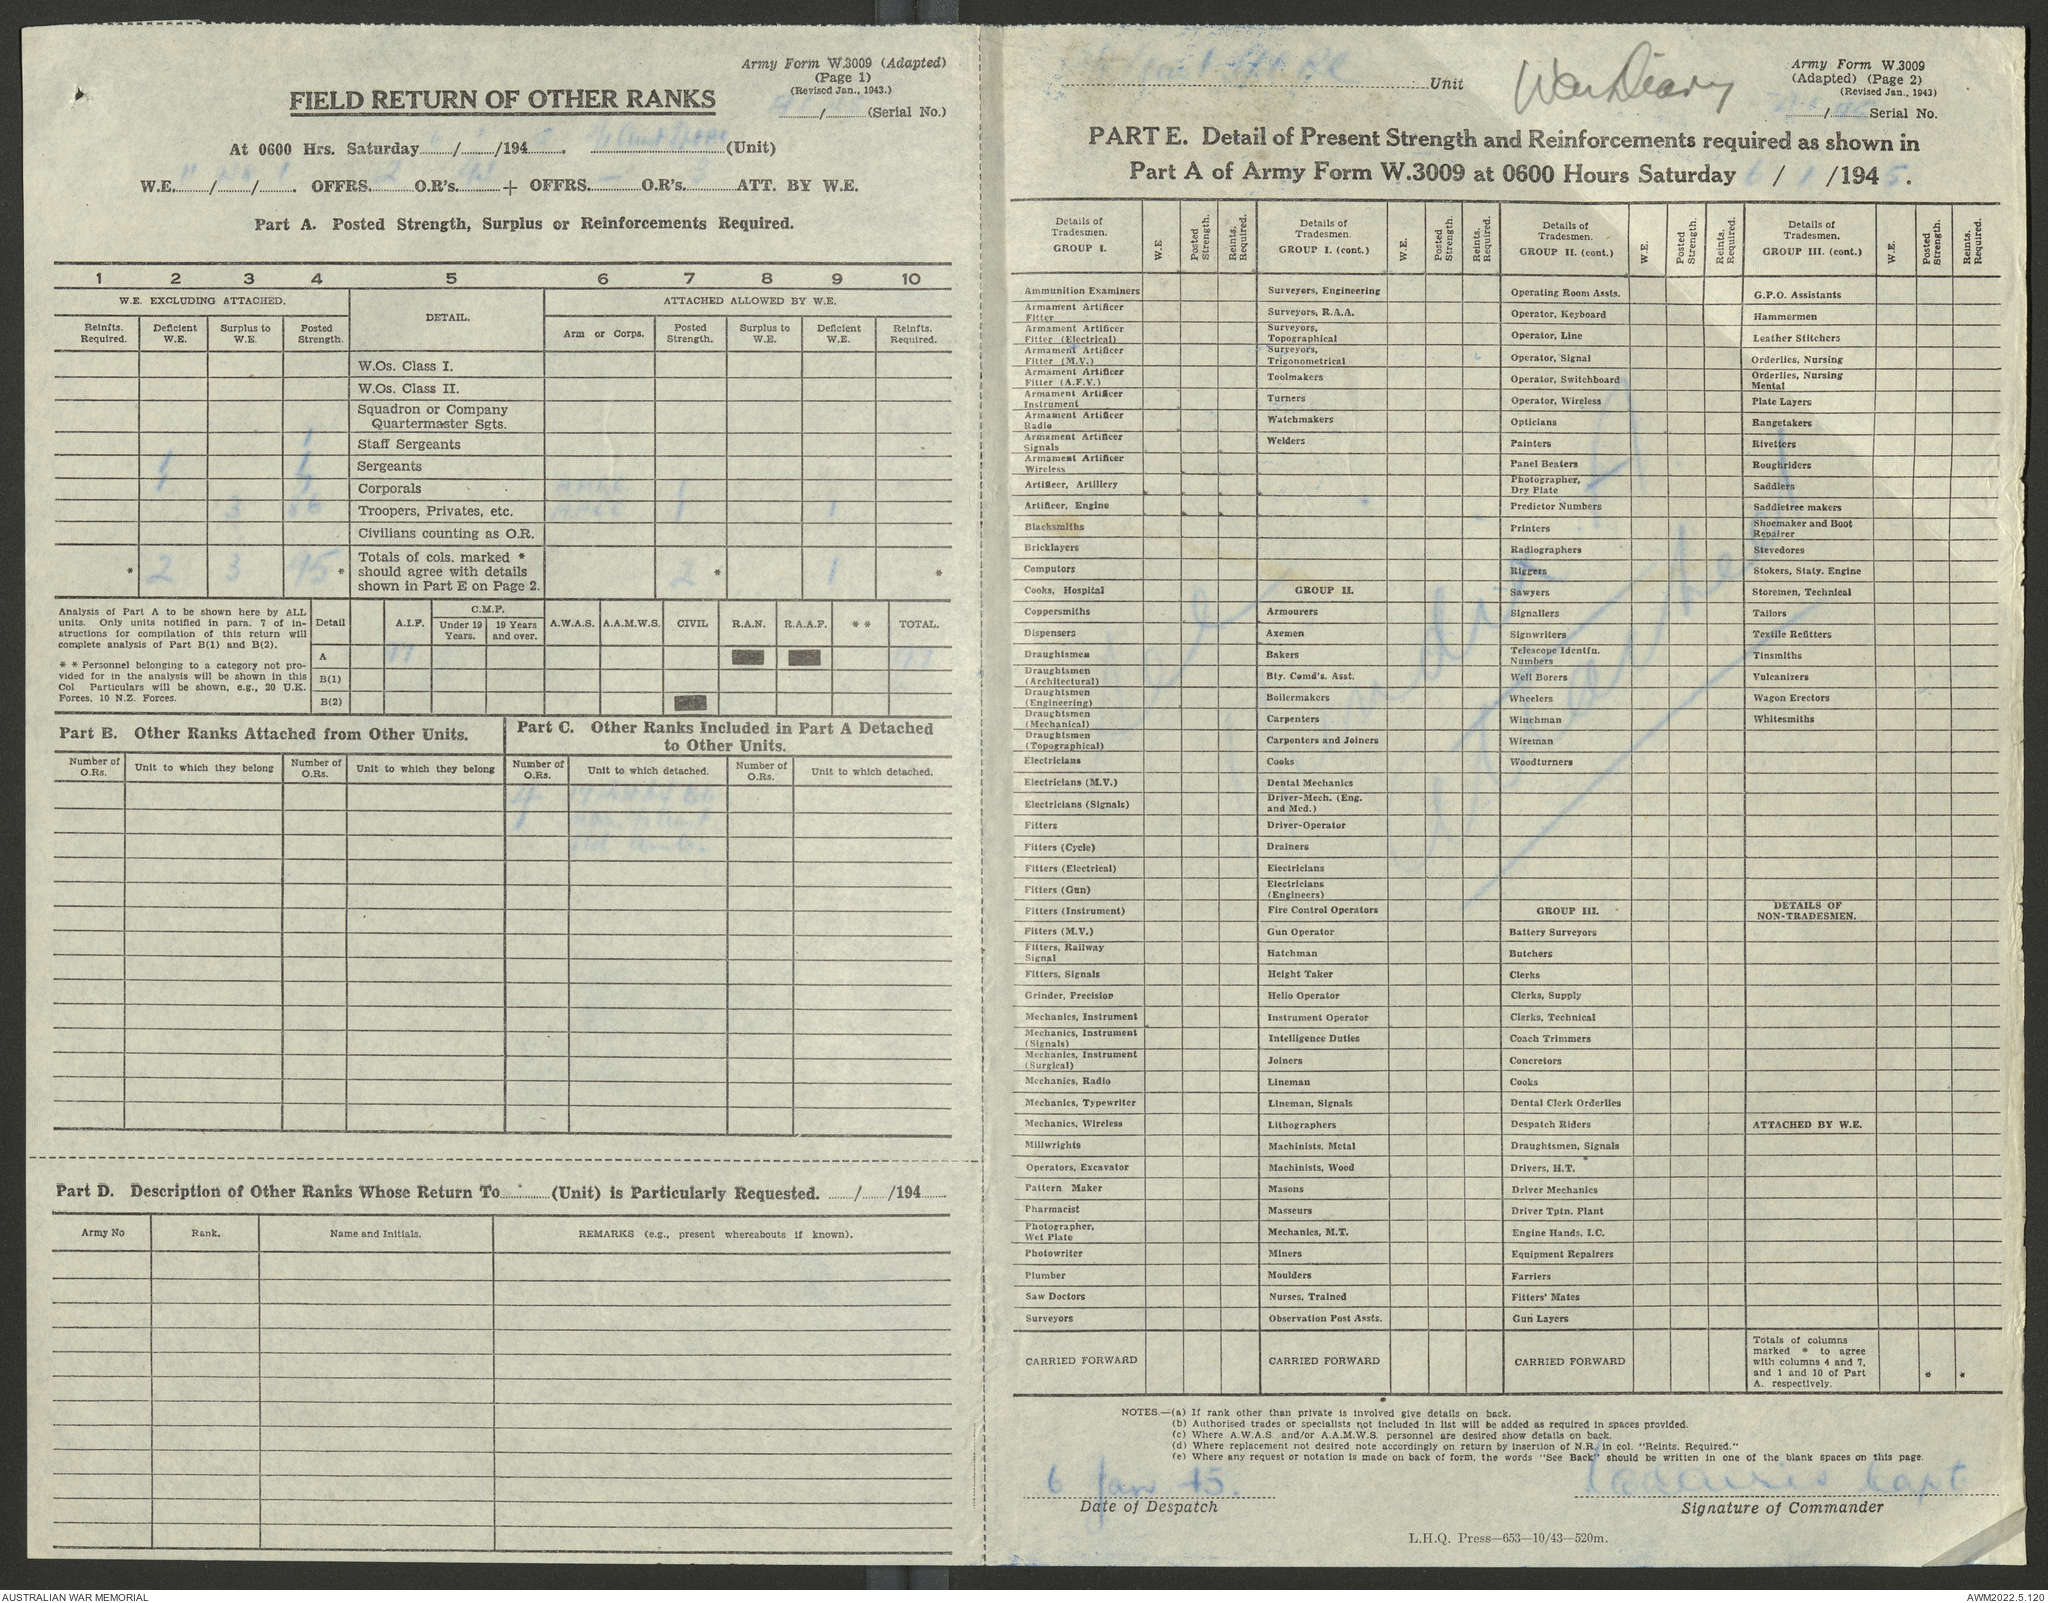 Army Form W.3009 (Adapted)
(Page 1)
(Revised Jan., 1943.)
FIELD RETURN OF OTHER RANKS
....../...... (Serial No.)
At 0600 Hrs. Saturday ....../....../194...... (Unit)
W.E. 11/....../1. OFFRS. 2 O.R's. 93 + OFFRS. – O.R's. 3 ATT. BY W.E.
Part A. Posted Strength, Surplus or Reinforcements Required.
1 2 3 4 5 6 7 8 9 10
W.E. EXCLUDING ATTACHED. DETAIL. ATTACHED ALLOWED BY W.E.
Reinfts. Required. Deficient W.E. Surplus to W.E. Posted Strength. Arm or Corps. Posted Strength. Surplus to W.E. Deficient W.E. Reinfts. Required.
W.Os. Class I.
W.Os. Class II.
Squadron or Company
Quartermaster Sgts.
1 Staff Sergeants
Sergeants
1 Corporals
3 86 Troopers, Privates, etc. 1 1
Civilians counting as O.R.
* 2 3 95 * Totals of cols. marked * should agree with details shown in Part E on Page 2. 2 * 1 *
Analysis of Part A to be shown here by ALL
units. Only units notified in para. 7 of in-
structions for compilation of this return will
complete analysis of Part B(1) and B(2).
* * Personnel belonging to a category not pro-
vided for in the analysis will be shown in this
Col Particulars will be shown, e.g., 20 U.K.
Forces, 10 N.Z. Forces.
Detail A.I.F. C.M.F. Under 19 Years. 19 Years and over. A.W.A.S. A.A.M.W.S. CIVIL R.A.N. R.A.A.F. * * TOTAL.
A 97 97
B(1)
B(2)
Part B. Other Ranks Attached from Other Units.
Part C. Other Ranks Included in Part A Detached
to Other Units.
Number of O.Rs. Unit to which they belong Number of O.Rs. Unit to which they belong Number of O.Rs. Unit to which detached. Number of O.Rs. Unit to which detached.
4
1
Part D. Description of Other Ranks Whose Return To ...... (Unit) is Particularly Requested. ....../....../194......
Army No Rank. Name and Initials. REMARKS (e.g., present whereabouts if known).
...... Unit
War Diary
Army Form W.3009
(Adapted) (Page 2)
(Revised Jan., 1943)
....../...... Serial No.
PART E. Detail of Present Strength and Reinforcements required as shown in
Part A of Army Form W.3009 at 0600 Hours Saturday 6 / 1 /1945.
Details of Tradesmen. GROUP I. W.E. Posted Strength. Reints. Required.
Ammunition Examiners
Armament Artificer Fitter
Armament Artificer Fitter (Electrical)
Armament Artificer Fitter (M.V.)
Armament Artificer Fitter (A.F.V.)
Armament Artificer Instrument
Armament Artificer Radio
Armament Artificer Signals
Armament Artificer Wireless
Artificer, Artillery
Artificer, Engine
Blacksmiths
Bricklayers
Computors
Cooks, Hospital
Coppersmiths
Dispensers
Draughtsmen
Draughtsmen (Architectural)
Draughtsmen (Engineering)
Draughtsmen (Mechanical)
Draughtsmen (Topographical)
Electricians
Electricians (M.V.)
Electricians (Signals)
Fitters
Fitters (Cycle)
Fitters (Electrical)
Fitters (Gun)
Fitters (Instrument)
Fitters (M.V.)
Fitters, Railway Signal
Fitters, Signals
Grinder, Precision
Mechanics, Instrument
Mechanics, Instrument (Signals)
Mechanics, Instrument (Surgical)
Mechanics, Radio
Mechanics, Typewriter
Mechanics, Wireless
Millwrights
Operators, Excavator
Pattern Maker
Pharmacist
Photographer, Wet Plate
Photowriter
Plumber
Saw Doctors
Surveyors
CARRIED FORWARD
Details of Tradesmen. GROUP I. (cont.) W.E. Posted Strength. Reints. Required.
Surveyors, Engineering
Surveyors, R.A.A.
Surveyors, Topographical
Surveyors, Trigonometrical
Toolmakers
Turners
Watchmakers
Welders
GROUP II.
Armourers
Axemen
Bakers
Bty. Comd's. Asst.
Boilermakers
Carpenters
Carpenters and Joiners
Cooks
Dental Mechanics
Driver-Mech. (Eng. and Med.)
Driver-Operator
Drainers
Electricians
Electricians (Engineers)
Fire Control Operators
Gun Operator
Hatchman
Height Taker
Helio Operator
Instrument Operator
Intelligence Duties
Joiners
Lineman
Lineman, Signals
Lithographers
Machinists, Metal
Machinists, Wood
Masons
Masseurs
Mechanics, M.T.
Miners
Moulders
Nurses, Trained
Observation Post Assts.
CARRIED FORWARD
Details of Tradesmen. GROUP II. (cont.) W.E. Posted Strength. Reints. Required.
Operating Room Assts.
Operator, Keyboard
Operator, Line
Operator, Signal
Operator, Switchboard
Operator, Wireless
Opticians
Painters
Panel Beaters
Photographer, Dry Plate
Predictor Numbers
Printers
Radiographers
Riggers
Sawyers
Signallers
Signwriters
Telescope Identfn. Numbers
Well Borers
Wheelers
Winchman
Wireman
Woodturners
GROUP III.
Battery Surveyors
Butchers
Clerks
Clerks, Supply
Clerks, Technical
Coach Trimmers
Concretors
Cooks
Dental Clerk Orderlies
Despatch Riders
Draughtsmen, Signals
Drivers, H.T.
Driver Mechanics
Driver Tptn. Plant
Engine Hands, I.C.
Equipment Repairers
Farriers
Fitters' Mates
Gun Layers
CARRIED FORWARD
Details of Tradesmen. GROUP III. (cont.) W.E. Posted Strength. Reints. Required.
G.P.O. Assistants
Hammermen
Leather Stitchers
Orderlies, Nursing
Orderlies, Nursing Mental
Plate Layers
Rangetakers
Rivetters
Roughriders
Saddlers
Saddletree makers
Shoemaker and Boot Repairer
Stevedores
Stokers, Staty. Engine
Storemen, Technical
Tailors
Textile Refitters
Tinsmiths
Vulcanizers
Wagon Erectors
Whitesmiths
DETAILS OF NON-TRADESMEN.
ATTACHED BY W.E.
Totals of columns
marked * to agree
with columns 4 and 7,
and 1 and 10 of Part
A. respectively.
* *
See
Appendix A
attached
NOTES.—(a) If rank other than private is involved give details on back.
(b) Authorised trades or specialists not included in list will be added as required in spaces provided.
(c) Where A.W.A.S. and/or A.A.M.W.S. personnel are desired show details on back.
(d) Where replacement not desired note accordingly on return by insertion of N.R. in col. "Reints. Required."
(e) Where any request or notation is made on back of form, the words "See Back" should be written in one of the blank spaces on this page.
6 Jan 45.
Date of Despatch
Capt
Signature of Commander
L.H.Q. Press—653—10/43—520m.
AUSTRALIAN WAR MEMORIAL
AWM2022.5.120